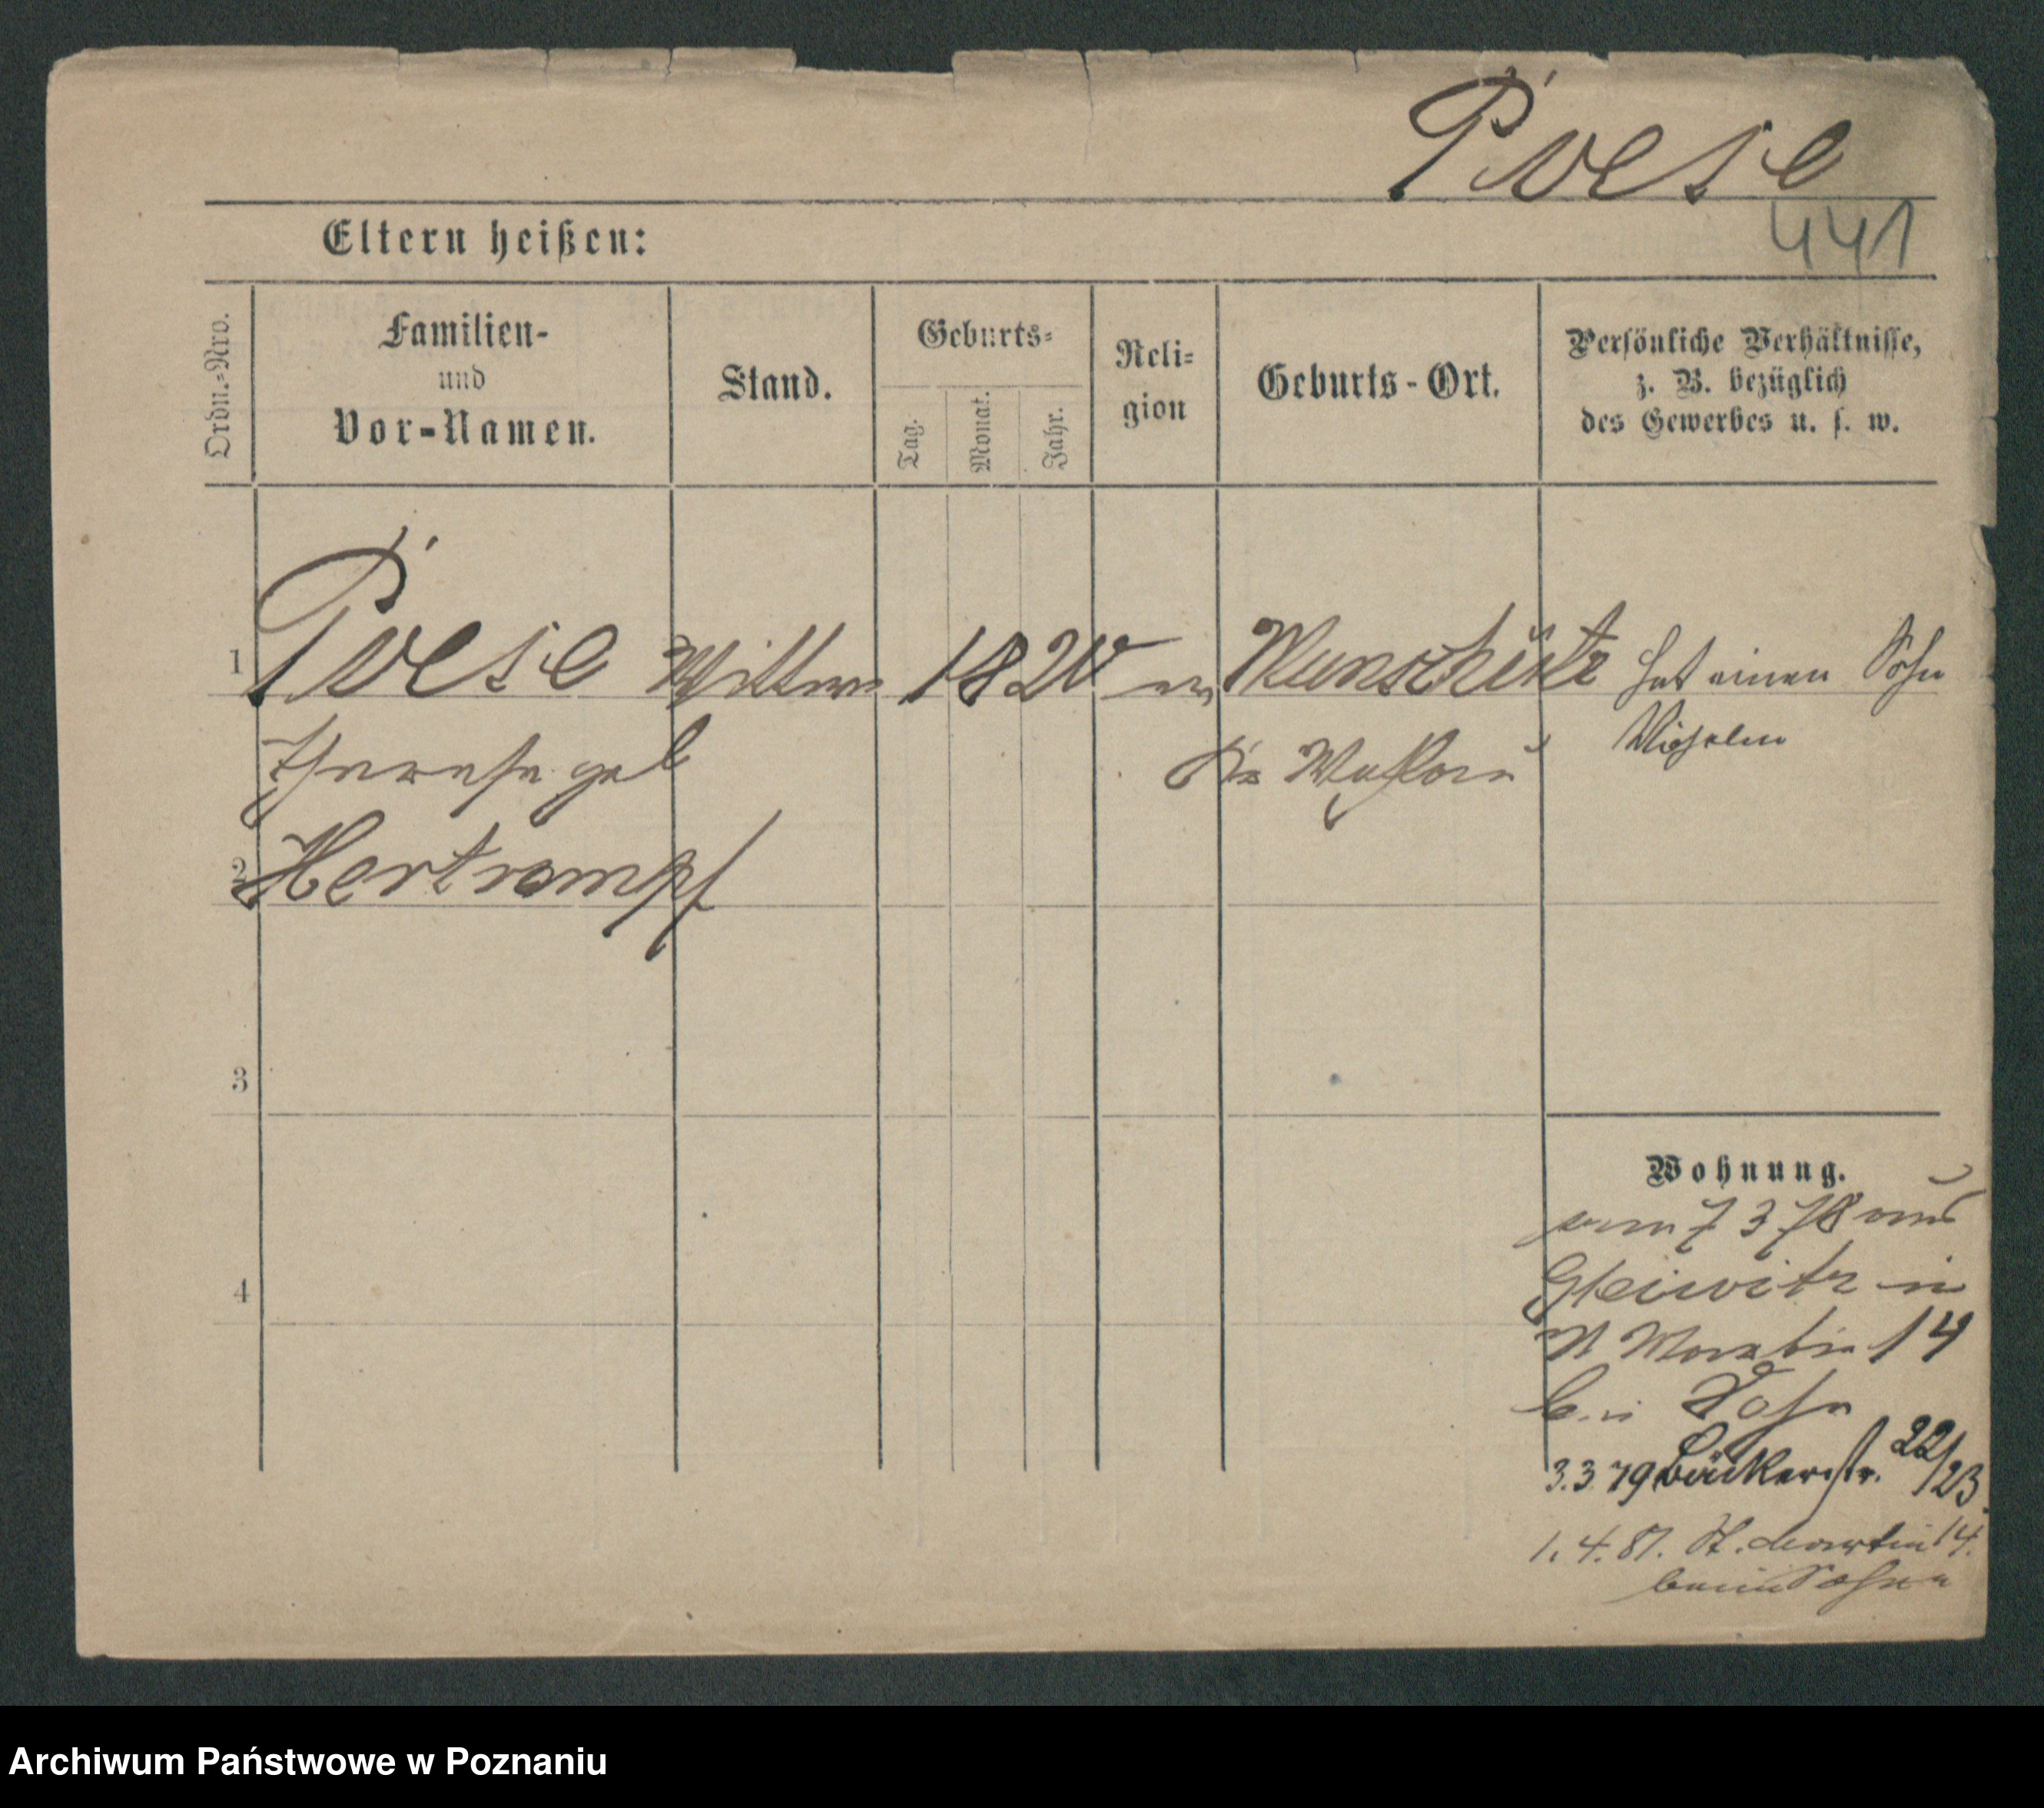 Poese
441
Eltern heißen:
Ordn.-Nro.
Familien-
und
Vor-Namen.
Stand.
Geburts-
Tag.
Monat.
Jahr.
Reli-
gion
Geburts-Ort.
Persönliche Verhältnisse,
z. B. bezüglich
des Gewerbes u. s. w.
1 Poese Wittwe 1820 ev Wunschütz hat einen Sohn
Therese geb
Wilhelm
2 Hertrampf
3
Wohnung.
vom 7 3 78 aus
4
Gleiwitz in
St Martin 14
bei Sohn
3.3.79 Bäckerstr. 22/23.
1.4.81. St. Martin 14.
beim Sohne
Archiwum Państwowe w Poznaniu